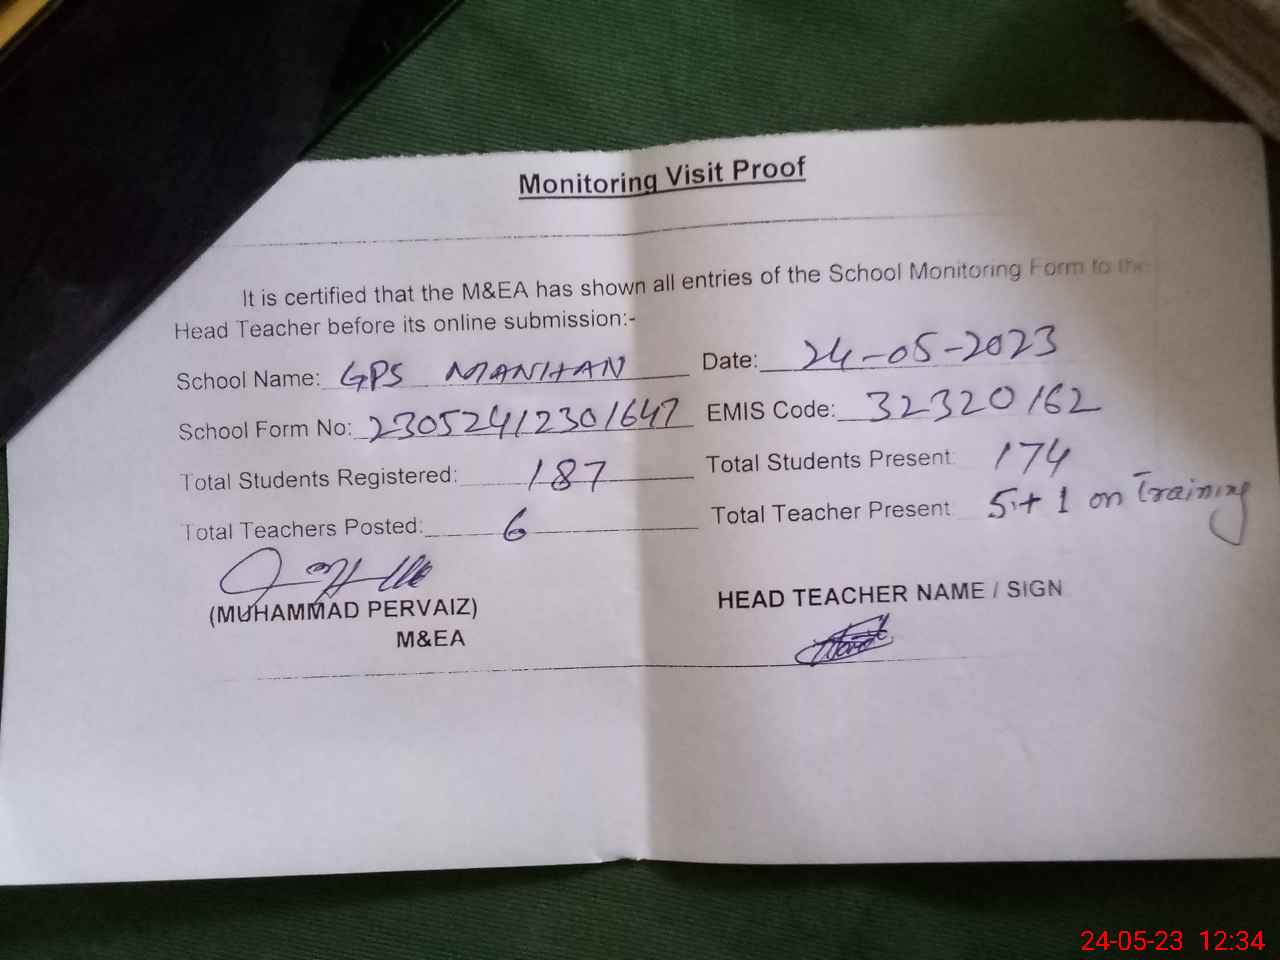 Monitoring Visit Proof
It is certified that the M&EA has shown all entries of the School Monitoring Form to the
Head Teacher before its online submission:-
School Name: GPS MANHAN Date: 24-05-2023
School Form No: 23052412301647 EMIS Code: 32320162
Total Students Registered: 187 Total Students Present 174
Total Teachers Posted: 6 Total Teacher Present 5+1 on Training
(MUHAMMAD PERVAIZ) HEAD TEACHER NAME / SIGN
M&EA
24-05-23 12:34